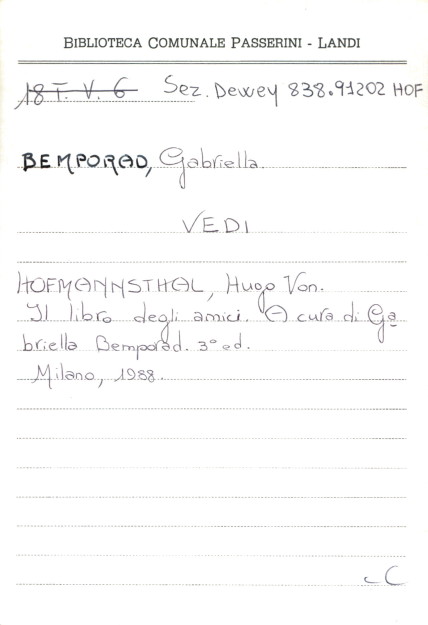 BIBLIOTECA COMUNALE PASSERINI - LANDI
18 T. V. 6 Sez. Dewey 838.91202 HOF
BEMPORAD, Gabriella.
VEDI
HOFMANNSTHAL, Hugo Von.
Il libro degli amici. A cura di Ga
briella Bemporad. 3° ed.
Milano, 1988.